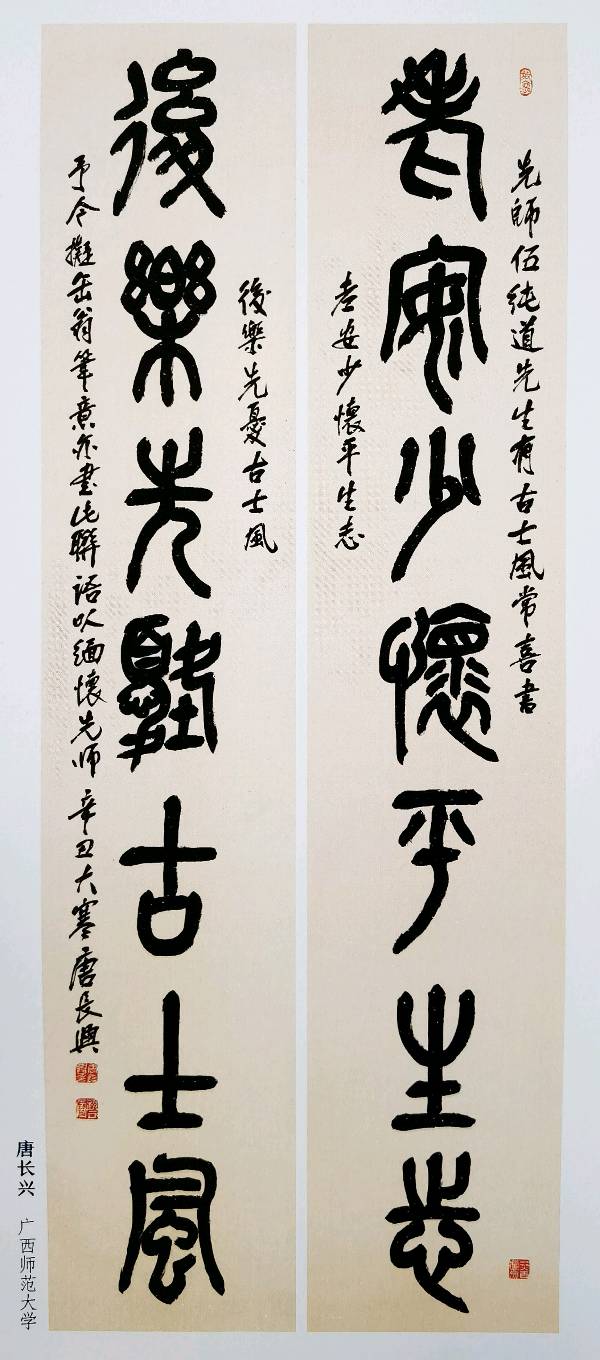 先師伍純道先生有古士風常喜書
老安少懷平生志
老安少懷平生志
後樂先憂古士風
後樂先憂古士風
予今擬缶翁筆意亦書此聯語以緬懷先师 辛丑大寒唐長興
唐长兴 广西师范大学